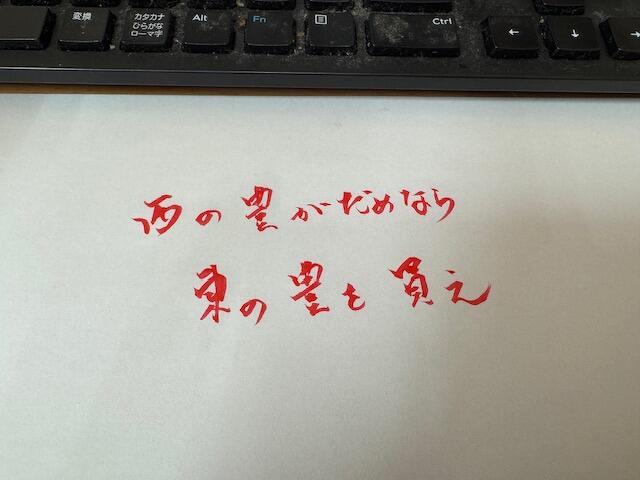 変換
カタカナ
ひらがな
ローマ字
Alt
Fn
Ctrl
西の豊がだめなら
東の豊を買え